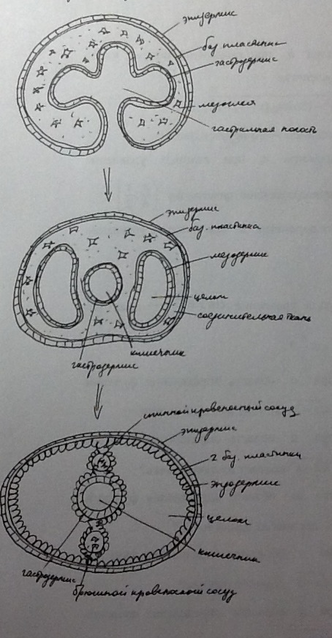 эпидермис
баз. пластинка
гастродермис
мезоглея
гастральная полость
эпидермис
баз. пластинка
мезодермис
целом
соединительная ткань
кишечник
гастродермис
спинной кровеносный сосуд
эпидермис
2 баз. пластинки
эндодермис
целом
кишечник
гастродермис
брюшной кровеносный сосуд